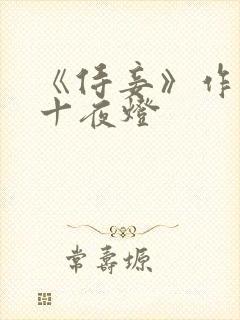 《侍妾》作
十夜燈
常壽塬